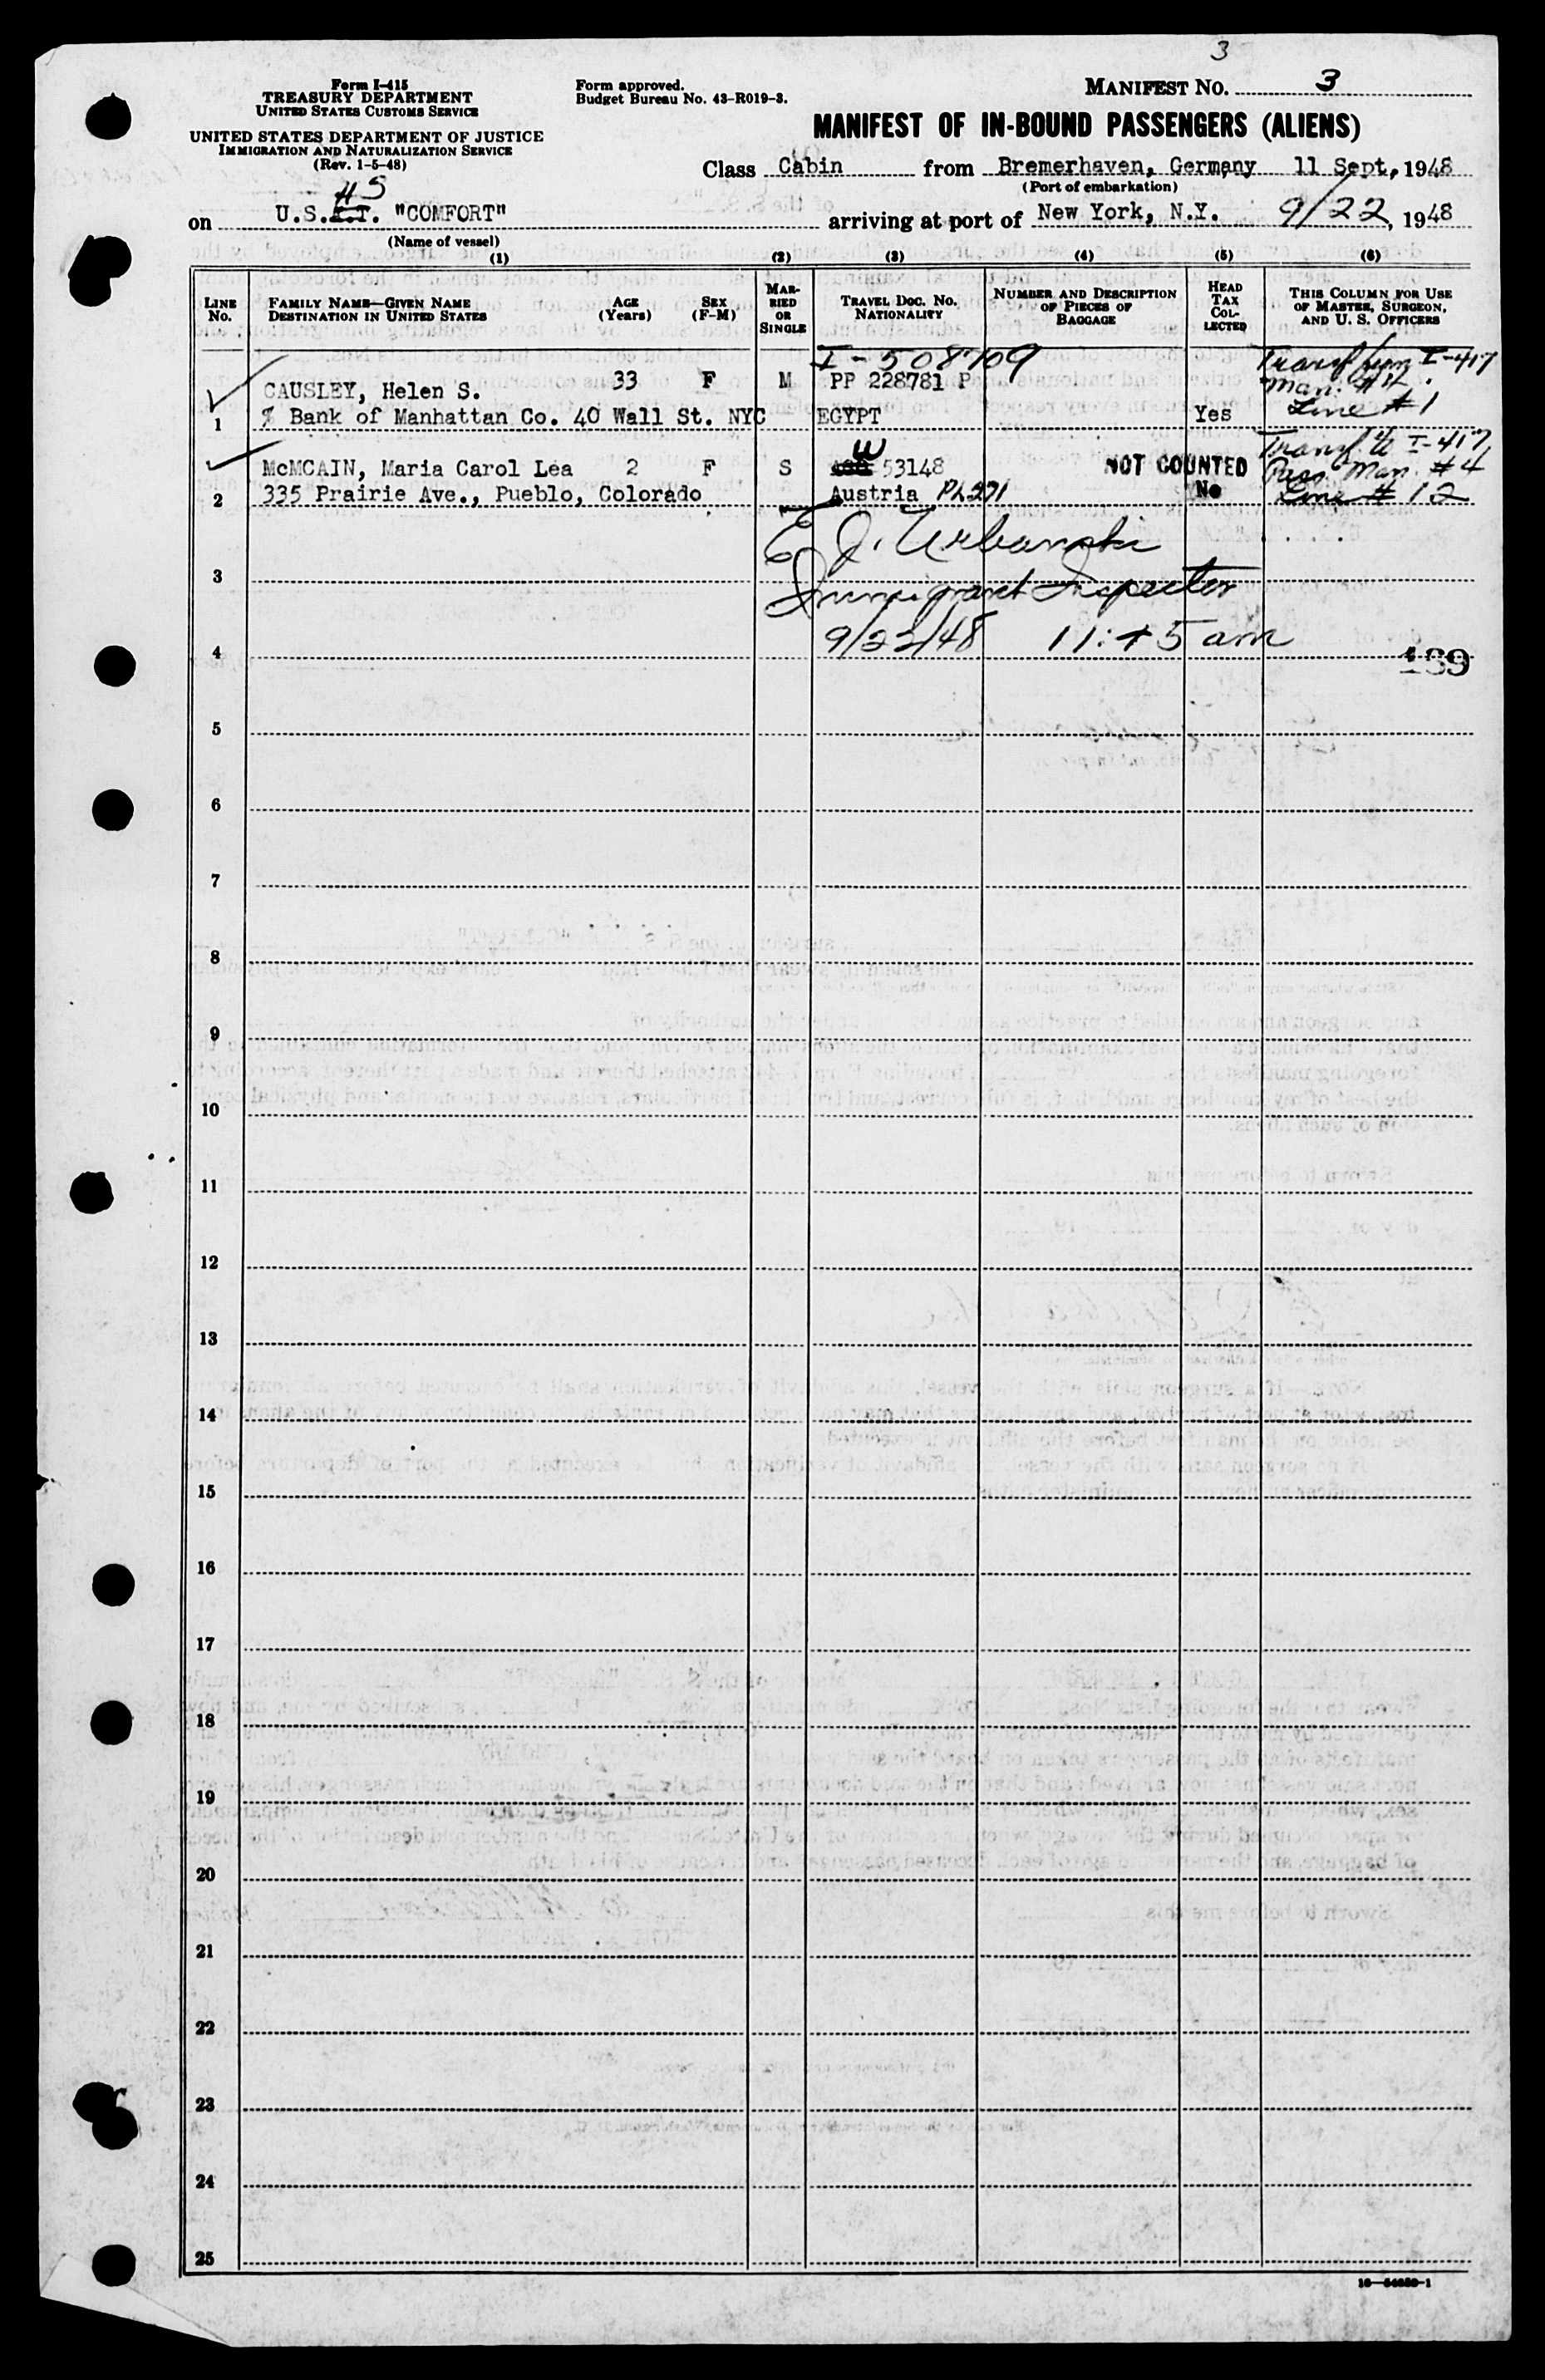 3
Form I-415
TREASURY DEPARTMENT
UNITED STATES CUSTOMS SERVICE
UNITED STATES DEPARTMENT OF JUSTICE
IMMIGRATION AND NATURALIZATION SERVICE
(Rev. 1-5-48)
Form approved.
Budget Bureau No. 43-R019-3.
MANIFEST NO. 3
MANIFEST OF IN-BOUND PASSENGERS (ALIENS)
Class Cabin from Bremerhaven, Germany 11 Sept, 1948
(Port of embarkation)
on U.S. "COMFORT"
(Name of vessel)
arriving at port of New York, N.Y. 9/22, 1948
(1) (2) (3) (4) (5) (6)
LINE No. FAMILY NAME—GIVEN NAME DESTINATION IN UNITED STATES AGE (Years) SEX (F-M) MARRIED OR SINGLE TRAVEL DOC. NO. NATIONALITY NUMBER AND DESCRIPTION OF PIECES OF BAGGAGE HEAD TAX COLLECTED THIS COLUMN FOR USE OF MASTER, SURGEON, AND U. S. OFFICERS
I-508709
CAUSLEY, Helen S. 33 F M PP 228781 P
1 % Bank of Manhattan Co. 40 Wall St. NYC EGYPT Yes
Transf from I-417
Man. #
Line #1
McMCAIN, Maria Carol Lea 2 F S W 53148 NOT COUNTED
2 335 Prairie Ave., Pueblo, Colorado Austria No
Transf to I-417
Pass Man. #4
Line # 12
E J. Urbanski
3 Immigrant Inspector
4 9/22/48 11:45 am
189
5
6
7
8
9
10
11
12
13
14
15
16
17
18
19
20
21
22
23
24
25